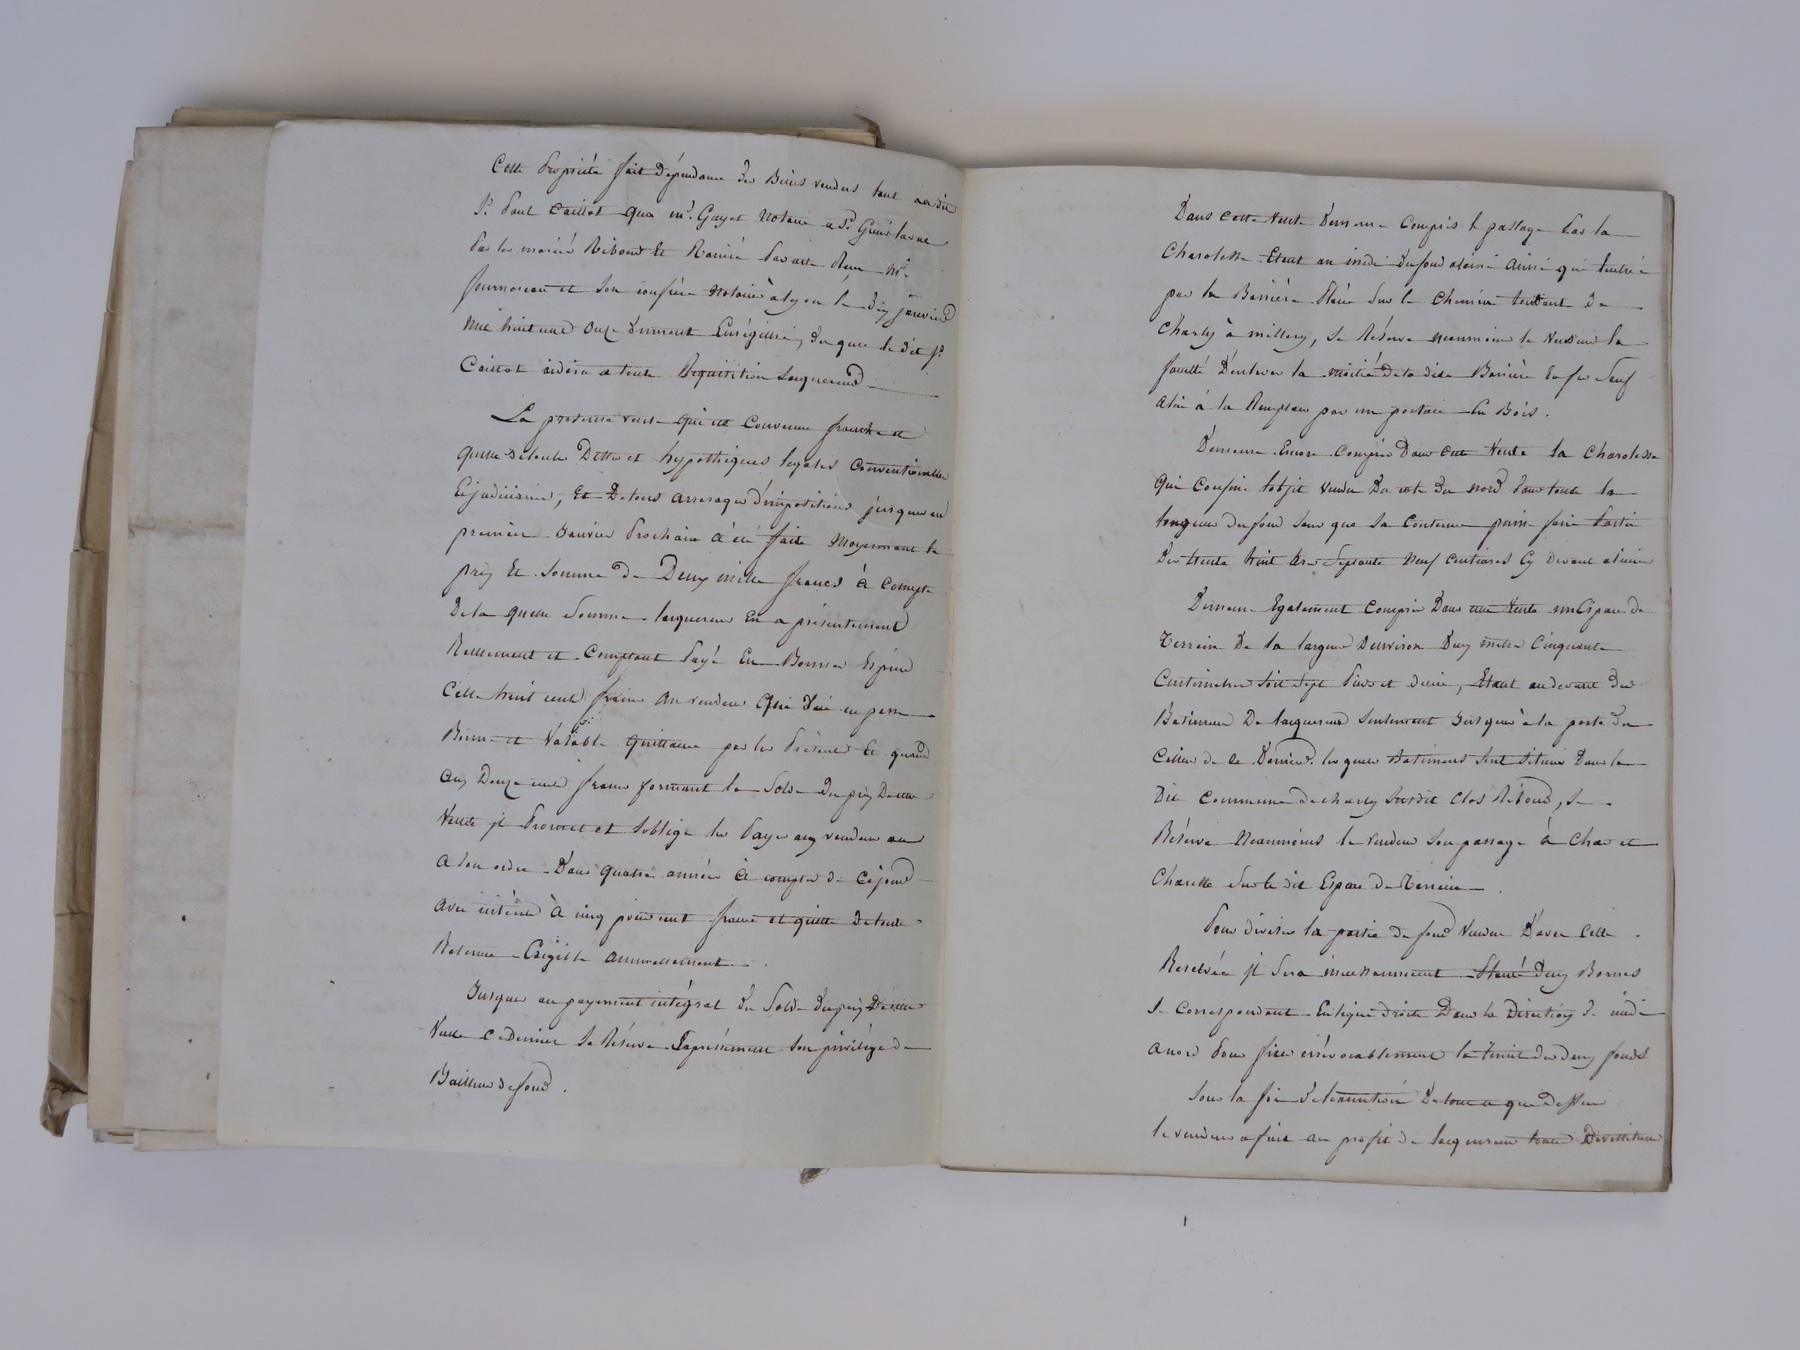 Cette Propriété fait dépendance des Biens vendus tant au dit
Sr. Paul Caillot qua mr. Gayet Notaire a St. Genis laval
Par les mariés Riboud et Ramié Par acte Reçu Me.
fournereau et Son confrère Notaires à lyon le dix janvier
mil huit cent onze duement Enrégistré, des quels le dit Sr.
Caillot aidera a toute Réquisition lacquereur
La présente vente qui est Convenue franche et
quitte de toute Dettes et hypothèques legales Conventionnelles
Et judiciaires, Et De tous arrerages d'impositions jusques au
premier Janvier Prochain a été faite Moyennant le
prix Et Somme de Deux mille francs à Compte
De la quelle Somme lacquereur En a présentement
Réellement et Comptant Payé En Bonnes Espèces
Celle huit cent francs au vendeur Qui d'ui en passe
Bonne et Valable Quittance par les Présentes Et quand
aux Douze cents francs formant le Solde du prix De cette
Vente il Promet et S'oblige les Payer aux vendeur ou
a Son ordre Dans Quatre années à compter de Cejour
avec intérêts à cinq pour cent francs et quitte de toute
Retenue Exigible annuellement.
Jusques au payement intégral du Solde du prix De cette
Vente ce Dernier Se Réserve Expressément Son privilège de
Bailleur de fond.
Dans cette vente Demeure Compris le passage Par la
Charolesse Etant au midi du fond aliéné ainsi que l'entrée
par la Barrière Placée Sur le Chemin tendant de
Charly à millery, Se Réserve neanmoins le Vendeur la
faculté D'enlever la moitié De la dite Barrière En fer Sauf
a lui à la Remplacer par un portail En Bois.
Demeure Encore Comprise Dans cette Vente la Charolesse
Qui Confine l'objet vendu Du coté du nord Dans toute la
longueur du fond Sans que Sa Contenue puisse faire Partie
Des trente huit ares Septante Neuf centiares Cy devant aliénés
Demeure Egalement Compris Dans cette Vente un Espace de
Terrein De la largeur D'environ Deux mètres Cinquante
Centimètres Soit Sept Pieds et demi, Etant au devant des
Batiments De lacquereur Seulement Jusques à la porte du
Cellier de ce Dernier. les quels Batiments Sont Situés Dans la
Dite Commune de charly Susdit Clos Riboud, Se
Réserve Neanmoins le vendeur Son passage à Char et
Charette Sur le dit Espace De Terrein.
Pour diviser la partie de fond Vendue D'avec Celle
Reservée il Sera incessamment Planté Deux Bornes
Se Correspondant En ligne droite Dans la Direction de midi
a nord Pour fixer irrévocablement la limite des deux fonds
Sous la foi de l'exécution De tout ce que Dessus
le vendeur a fait au profit de lacquereur toutes Dévestiture